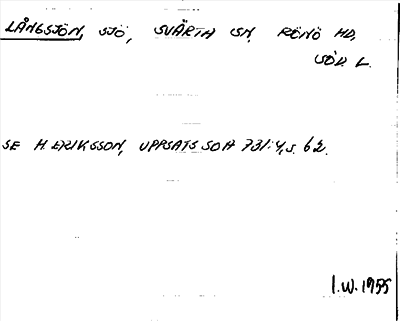 LÅNGSJÖN, SJÖ, SVÄRTA SN, RÖNÖ HD,
SÖD. L.
SE H. ERIKSSON, UPPSATS SOA 731:4, S. 62.
I.W. 1955